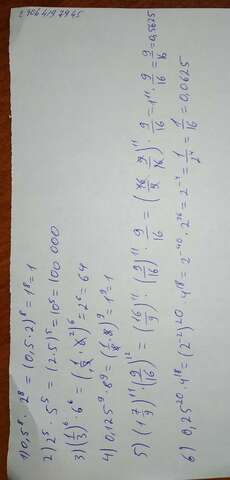 2906419 7945
1) 0,5⁸ · 2⁸ = (0,5 · 2)⁸ = 1⁸ = 1
2) 2⁵ · 5⁵ = (2·5)⁵ = 10⁵ = 100 000
3) (1/3)⁶ · 6⁶ = (1/3 · 6 2)⁶ = 2⁶ = 64
4) 0,125⁹ · 8⁹ = (1/8 · 8)⁹ = 1⁹ = 1
5) (1 7/9)¹¹ · (9/16)¹² = (16/9)¹¹ · (9/16)¹¹ · 9/16 = (16/9 · 9/16)¹¹ · 9/16 = 1¹¹ · 9/16 = 9/16 = 0,5625
6) 0,25²⁰ · 4¹⁸ = (2⁻²)²⁰ · 4¹⁸ = 2⁻⁴⁰ · 2³⁶ = 2⁻⁴ = 1/2⁴ = 1/16 = 0,0625